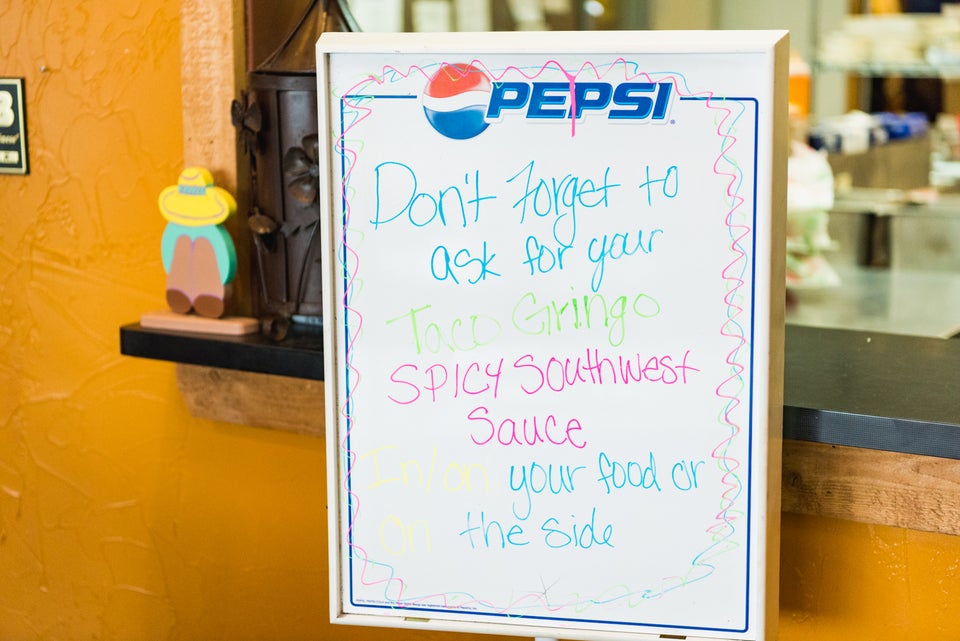 PEPSI
Don't Forget to
ask for your
Taco Gringo
SPICY Southwest
Sauce
In/on your food or
on the side